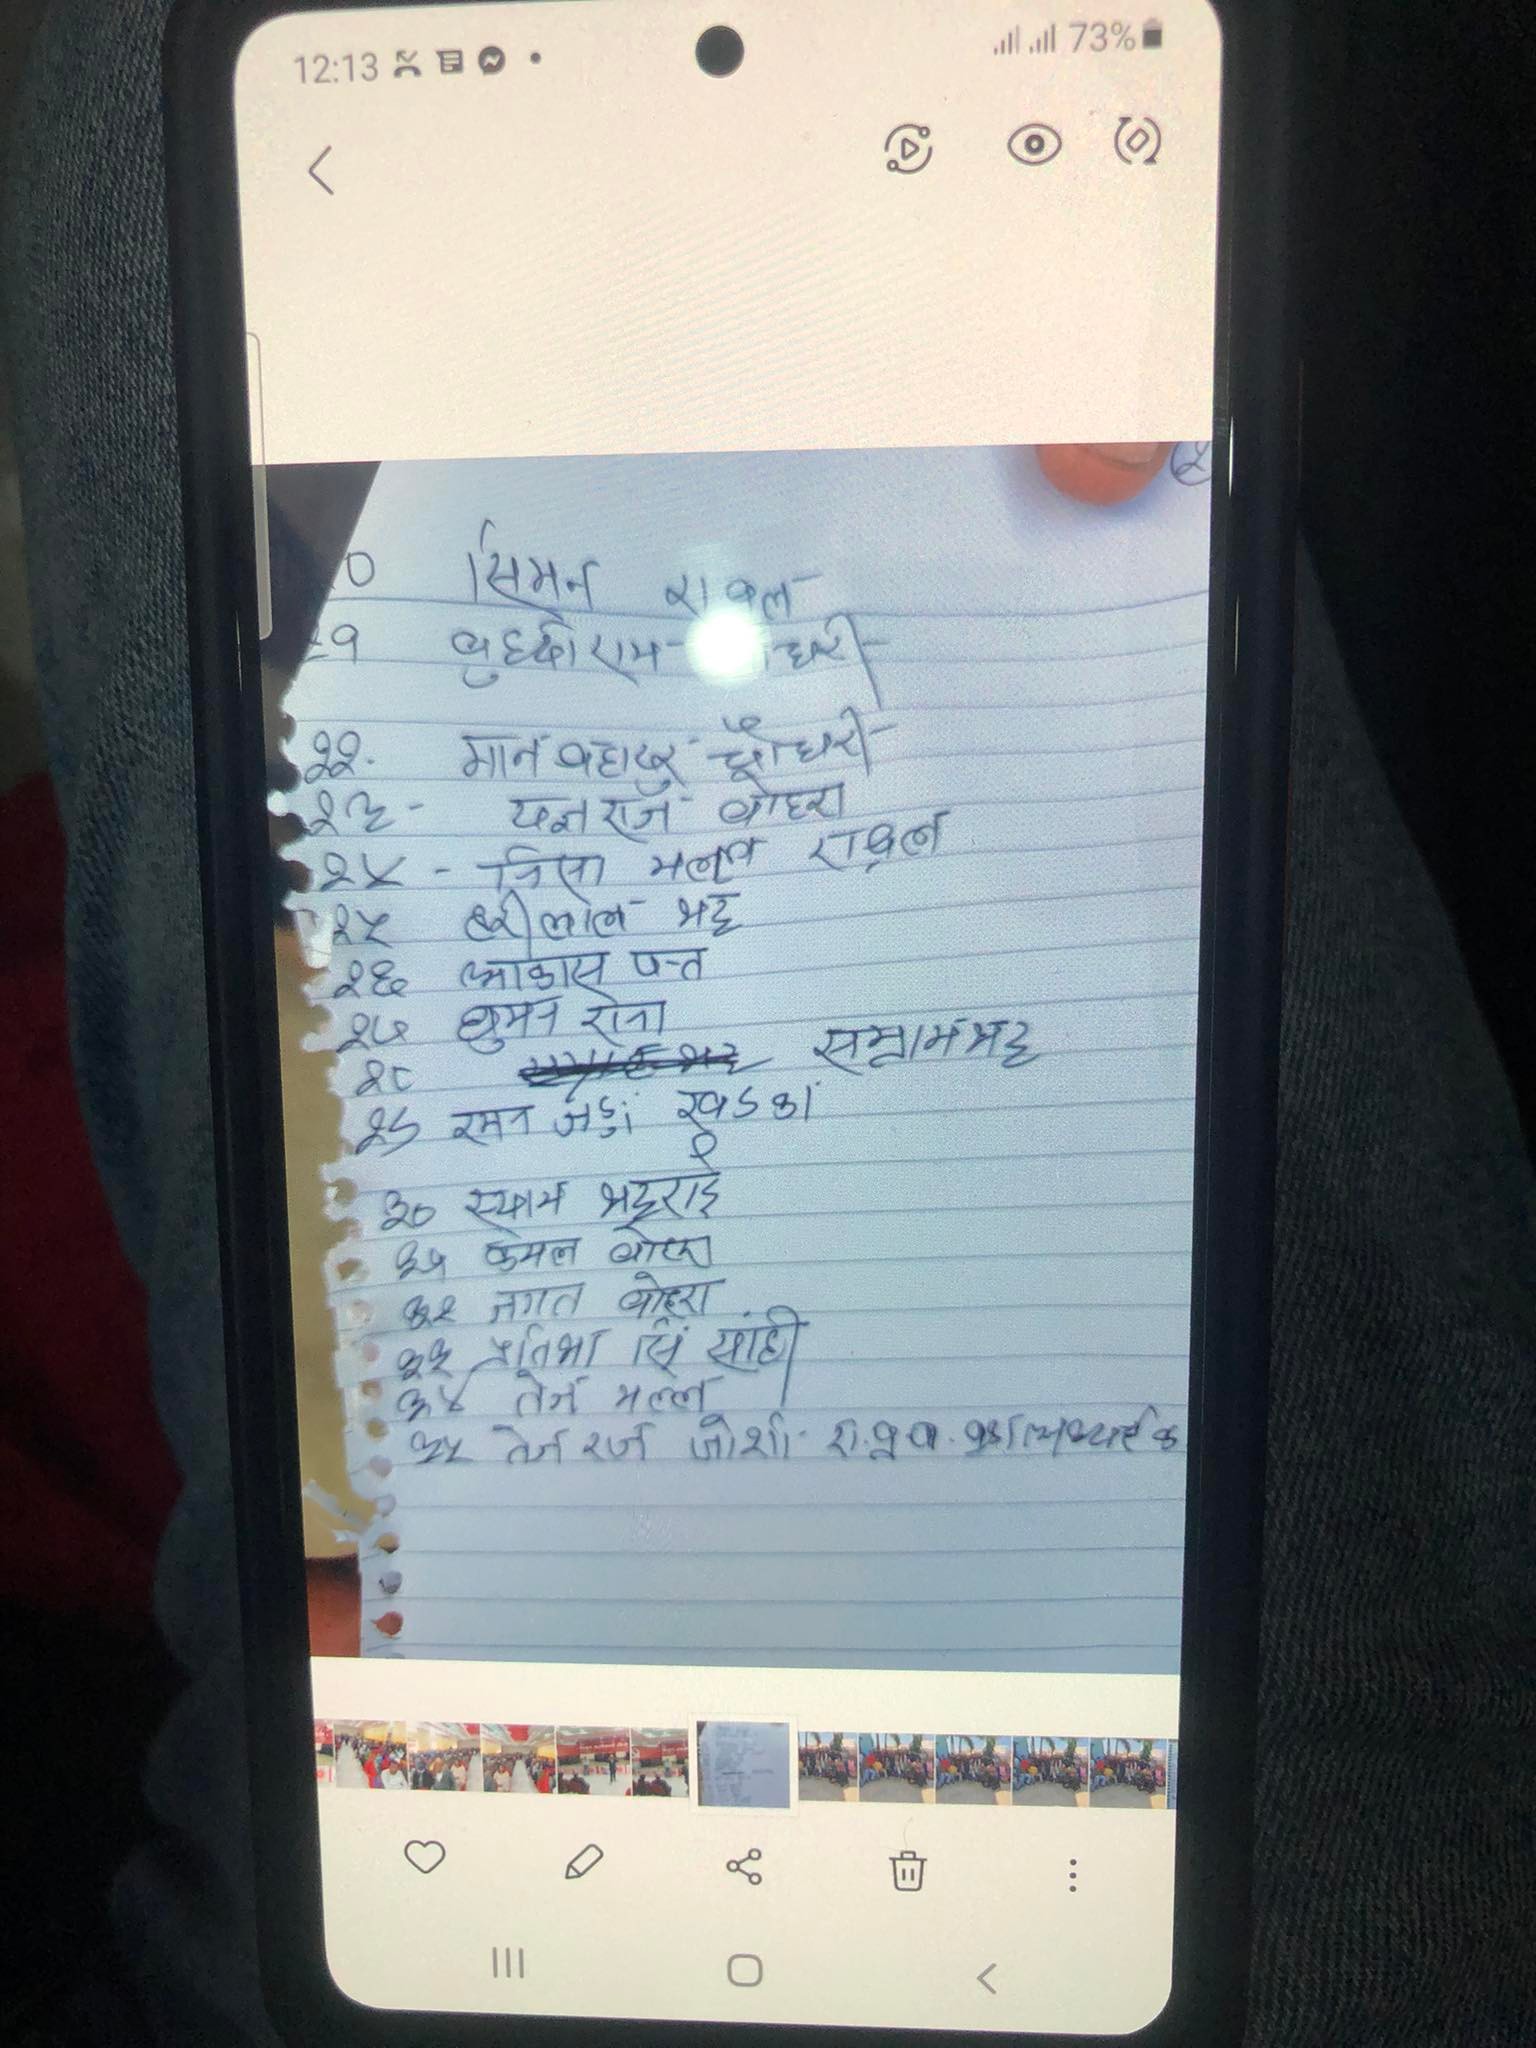 12:13 73%
२
० सिमन रावल
२१ बुद्धीराम चौधरी
२२. मान बहादुर चौधरी
२३ - यज्ञराज बोहरा
२४ - निसा मल्ल रावल
२५ हरीलाल भट्ट
२६ आकास पन्त
२७ सुमन राना
२८ सम्राम भट्ट
२९ रमन जङ्ग खडका
३० स्याम भट्टराई
३१ कमल बोहरा
३२ जगत बोहरा
३३ प्रतिभा सिं सांही
३४ तेज मल्ल
३५ तेज राज जोशी